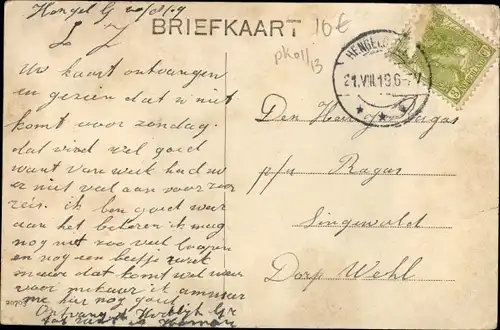 Hengel G 20/8/19
BRIEFKAART
16 €
pk01/13
HENGELO
21.VIII.19 6-7V
L Z
Uw kaart ontvangen
en gezien dat u niet
komt voor zondag.
dat vind wel goed
want van week had u
er niet veel aan voor zoo
reis. ik ben goed weer
aan het beteren ik mag
nog niet zoo veel loopen
en nog een beetje
dat komt wel weer
voor mekaar ik amuseer
me hier nog goed
Ontvang de Hartelijk Gr
Den Heer
p/a Ragas
Singewald
Dorp Wehl